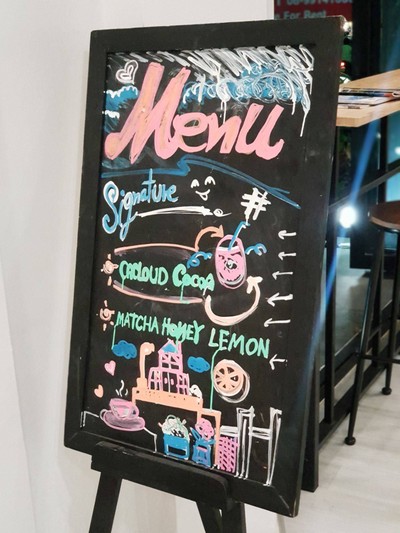 Menu
Signature #
CACLOUD COCOA
MATCHA HONEY LEMON
For Rent